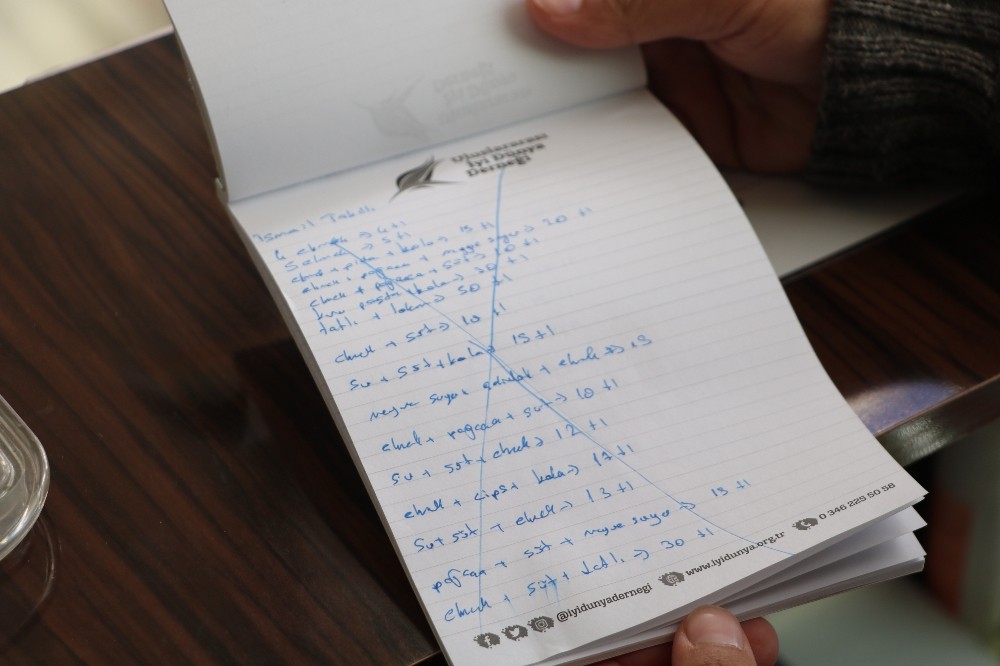 Uluslararası
İyi Dünya
Derneği
İsmail
4 ekmek => 4 tl
5 ekmek => 5 tl
ekmek + + kola => 15 tl
ekmek + poğaca + meyve suyu => 20 tl
ekmek + poğaca + süt => 10 tl
kuru pasta + kola => 20 tl
tatlı + => 50 tl
ekmek + süt => 10 tl
su + süt + kola => 15 tl
meyve suyu + + ekmek => 13
ekmek + poğaca + su => 10 tl
su + süt + ekmek => 12 tl
ekmek + cips + kola => 17 tl
su + süt + ekmek => 13 tl
poğaca + süt + meyve suyu => 15 tl
ekmek + süt + tatlı => 30 tl
@iyidunyadernegi www.iyidunya.org.tr 0 346 225 50 58